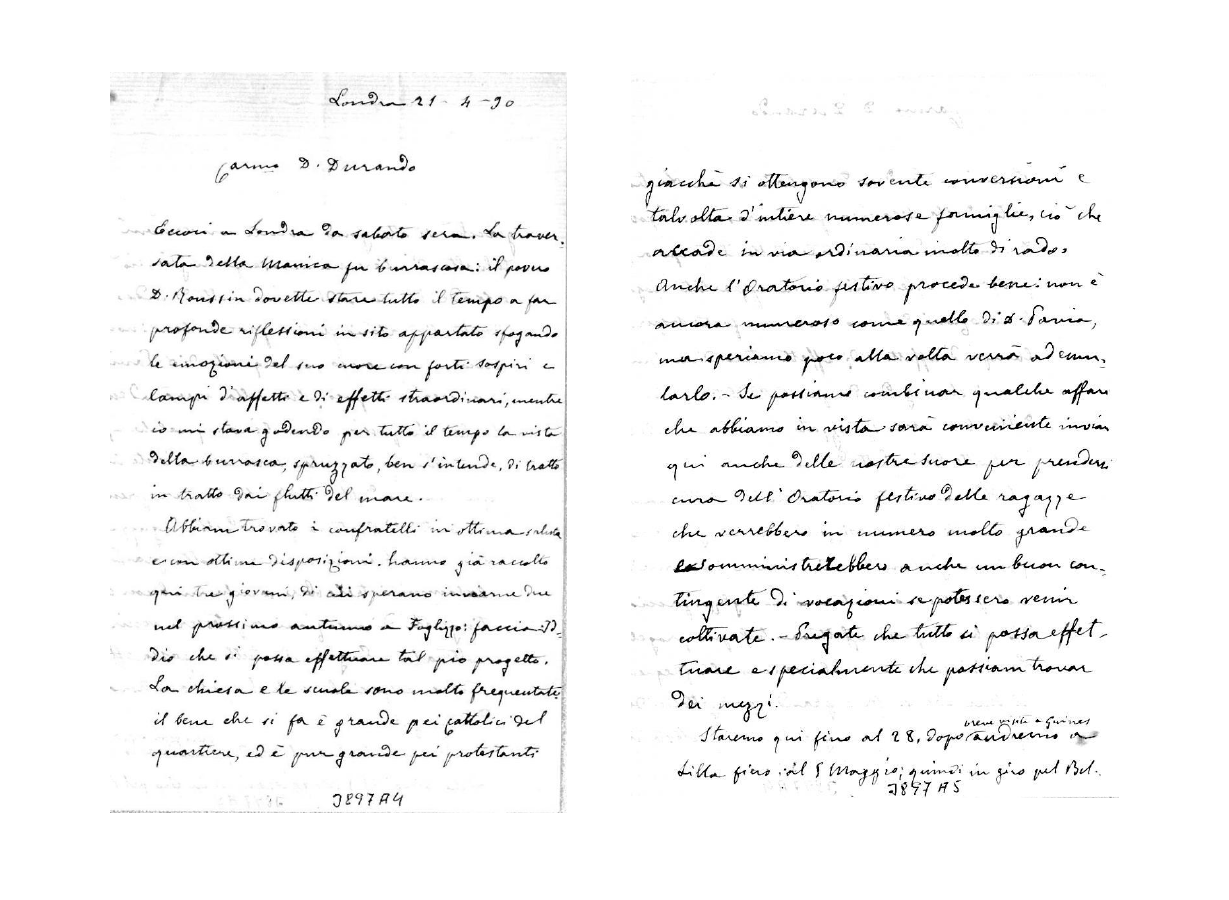 Londra 21 - 4 - 90
Carmo D. Durando
Eccoci a Londra da sabato sera. La traver-
sata della Manica fu burrascosa: il povero
D. Roussin dovette stare tutto il tempo a far
profonde riflessioni in sito appartato sfogando
le emozioni del suo cuore con forti sospiri e
lampi d'affetti e di effetti straordinari, mentre
io mi stava godendo per tutto il tempo la vista
della burrasca, spruzzato, ben s'intende, di tratto
in tratto dai flutti del mare.
Abbiam trovato i confratelli in ottima salute
e con ottime disposizioni. hanno già raccolto
qui tre giovani, di cui sperano inviarne due
nel prossimo autunno a Foglizzo: faccia Id-
dio che si possa effettuare tal pio progetto.
La chiesa e le scuole sono molto frequentate
il bene che si fa è grande pei cattolici del
quartiere, ed è pur grande pei protestanti
J897A4
giacchè si ottengono sovente conversioni e
talvolta d'intiere numerose famiglie, ciò che
accade in via ordinaria molto di rado.
Anche l'Oratorio festivo procede bene: non è
ancora numeroso come quello di D. Pavia,
ma speriamo poco alla volta verrà ad emu-
larlo. - Se possiamo combinar qualche affare
che abbiamo in vista sarà conveniente inviar
qui anche delle nostre suore per prendersi
cura dell'Oratorio festivo delle ragazze
che verrebbero in numero molto grande
e somministrerebbero anche un buon con-
tingente di vocazioni se potessero venir
coltivate. - Pregate che tutto si possa effet-
tuare e specialmente che possiam trovar
dei mezzi.
breve visita a Guines
Staremo qui fino al 28, dopo andremo a
Lilla fino al 5 Maggio; quindi in giro pel Bel-
J897A5